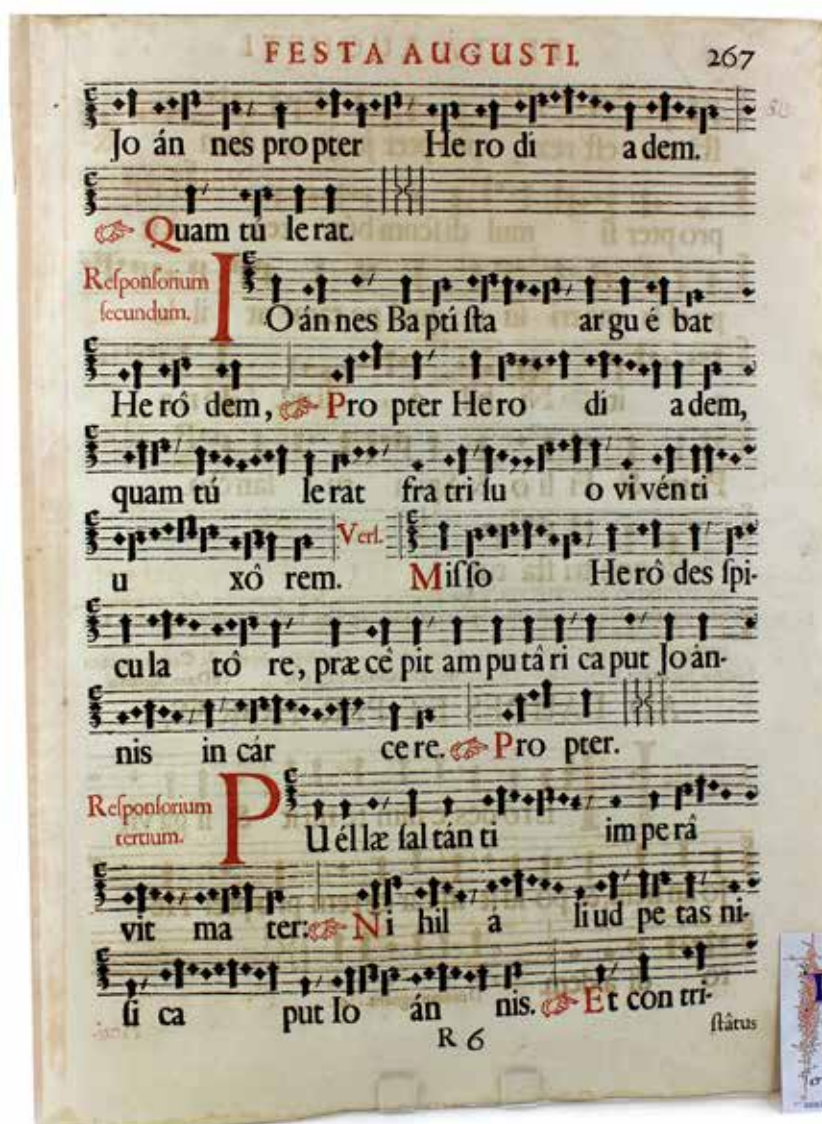 FESTA AUGUSTI. 267
Jo án nes propter He ro di a dem.
☞ Quam tú le rat.
Reſponſorium
ſecundum.
IO án nes Ba ptí ſta ar gu é bat
He rô dem, ☞ Pro pter He ro di a dem,
quam tú le rat fra tri ſu o vi vén ti
u xô rem. Verſ. Miſ ſo He rô des ſpi-
cu la tô re, præ cê pit am pu tâ ri ca put Jo án-
nis in cár ce re. ☞ Pro pter.
Reſponſorium
tertium.
PU él læ ſal tán ti im pe râ
vit ma ter: ☞ Ni hil á liud pe tas ni-
ſi ca put Io án nis. ☞ Et con tri-
R 6 ſtâtus